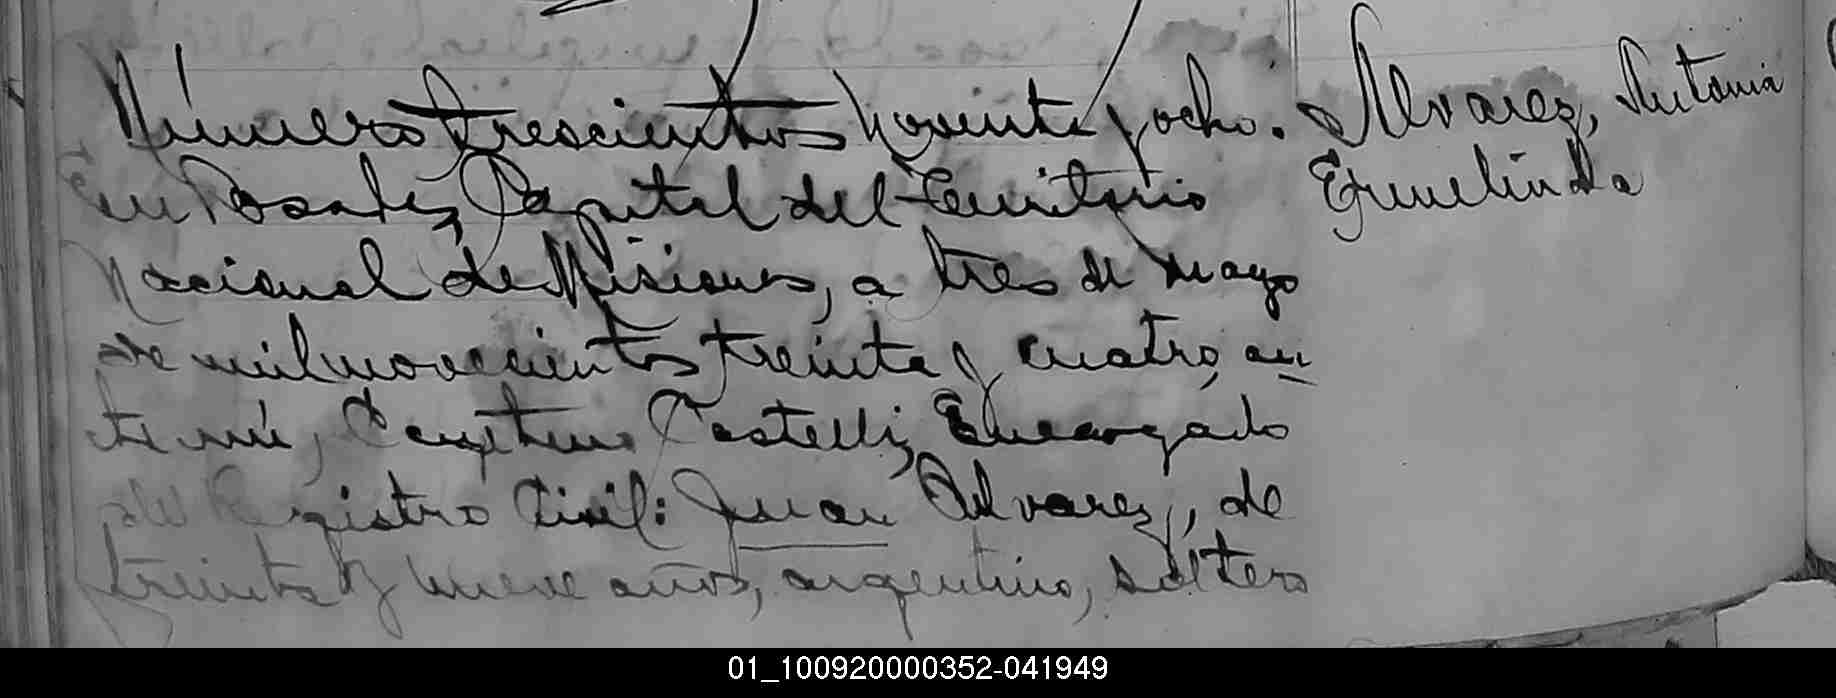 Número trescientos noventa y ocho.
En Posadas, Capital del Territorio
Nacional de Misiones, a tres de Mayo
de mil novecientos treinta y cuatro, an
te mí, Castelli, Encargado
del Registro Civil: Juan Alvarez, de
treinta y nueve años, argentino, soltero
Alvarez, Antonia
Ermelinda
01_100920000352-041949